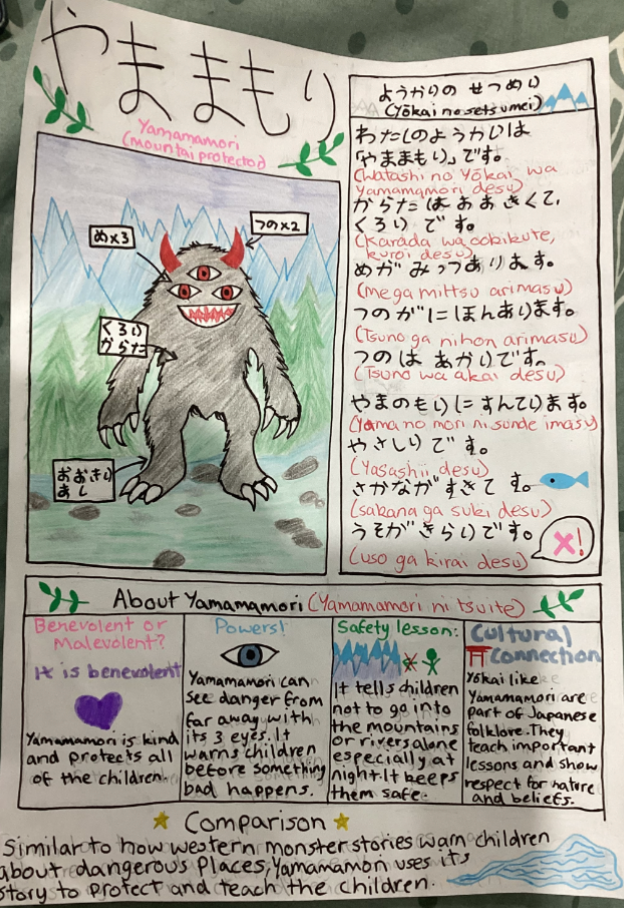 やままもり
Yamamamori
(mountai protector)
めx3
つのx2
くろい
からだ
おおきい
あし
ようかいの せつめい
(Yōkai no setsumei)
わたしのようかいは
「やままもり」です。
(Watashi no Yōkai wa
Yamamamori desu)
からだ は おおきくて、
くろい です。
(Karada wa ookikute,
kuroi desu)
めが みっつあります。
(me ga mittsu arimasu)
つのが にほんあります。
(Tsuno ga nihon arimasu)
つのは あかいです。
(Tsuno wa akai desu)
やまのもりに すんでいます。
(Yama no mori ni sunde imasu)
やさしい です。
(Yasashii desu)
さかなが すきで す。
(sakana ga suki desu)
うそが きらいです。
(uso ga kirai desu)
X!
About Yamamamori (Yamamamori ni tsuite)
Benevolent or
Malevolent?
It is benevolent
Yamamamori is kind
and protects all
of the children.
Powers!
Yamamamori can
see danger from
far away with
its 3 eyes. It
warns children
before something
bad happens.
Safety lesson:
It tells children
not to go into
the mountains
or rivers alone
especially at
night. It keeps
them safe.
Cultural
Connection
Yōkai like
Yamamamori are
part of Japanese
folklore. They
teach important
lessons and show
respect for nature
and beliefs.
Comparison
Similar to how western monster stories warn children
about dangerous places, Yamamamori uses its
story to protect and teach the children.